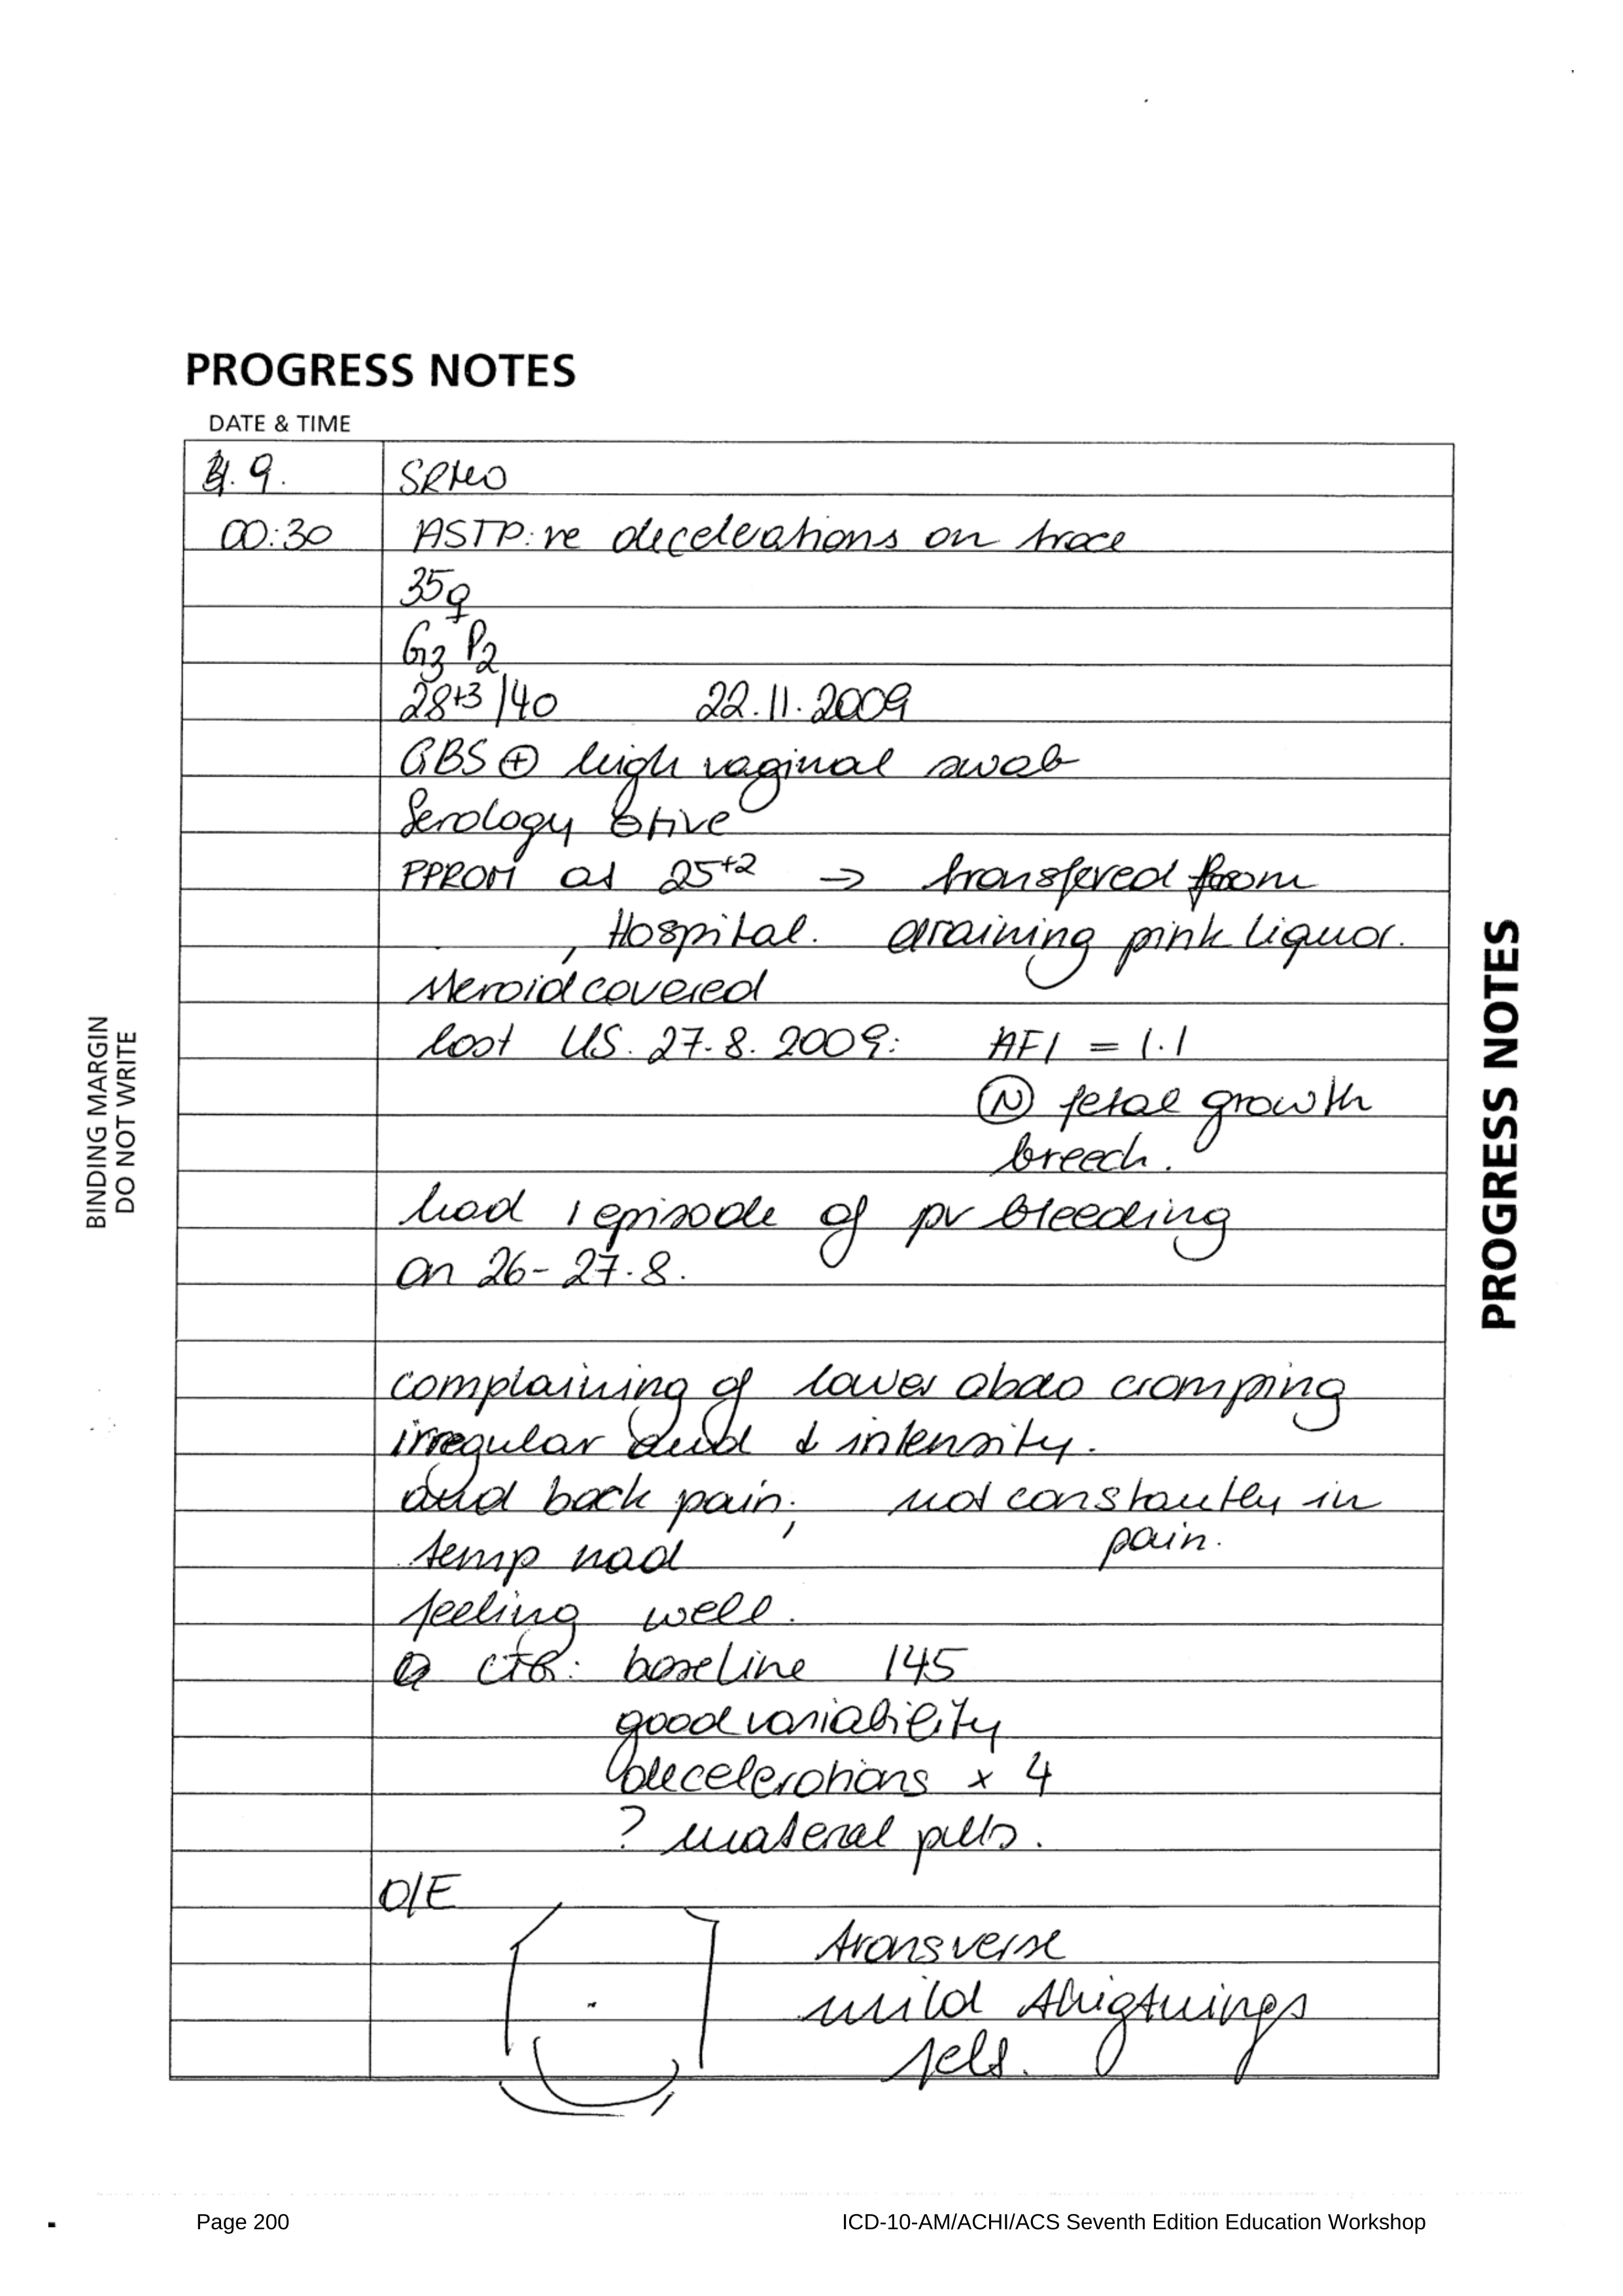 PROGRESS NOTES
DATE & TIME
4.9. SRMO
00:30 ASTP: re decelerations on trace
35♀
G3 P2
28+3/40 22.11.2009
GBS ⊕ high vaginal swab
Serology ⊖tive
PPROM at 25+2 → transfered from
Hospital. draining pink liquor.
steroid covered
last US. 27.8.2009: AFI = 1.1
Ⓝ fetal growth
breech.
had 1 episode of pv bleeding
on 26-27.8.
complaining of lower abdo cramping
irregular & intensity.
and back pain; not constantly in
pain.
temp nad
feeling well.
CTG: baseline 145
good variability
decelerations x 4
? materal puls.
O/E
transverse
mild thigtnings
felt.
BINDING MARGIN
DO NOT WRITE
PROGRESS NOTES
Page 200 ICD-10-AM/ACHI/ACS Seventh Edition Education Workshop